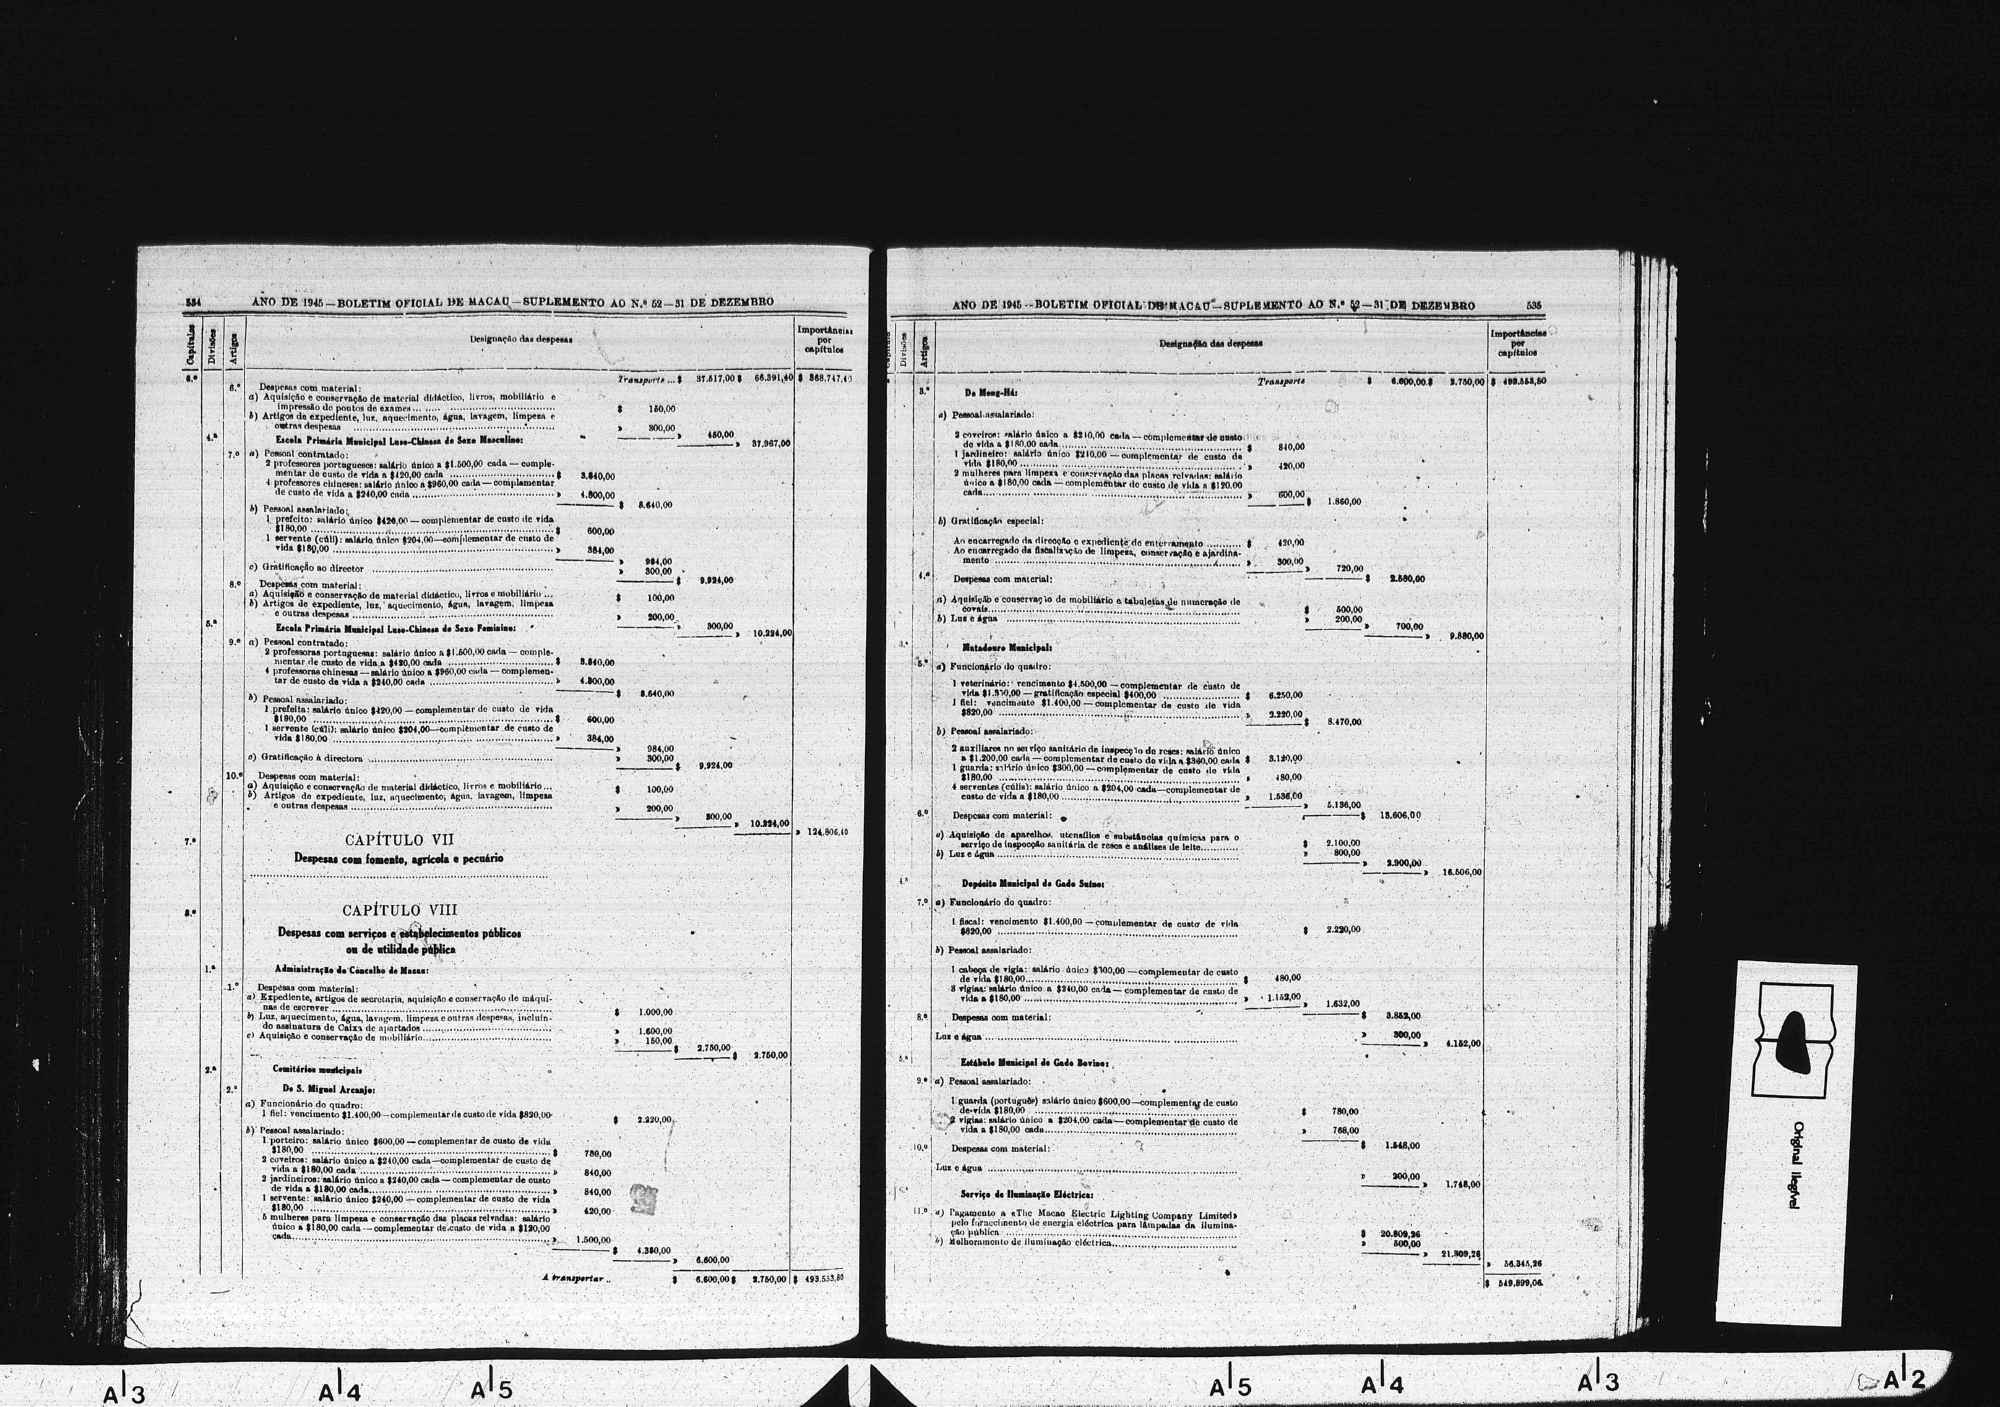 534 ANO DE 1945—BOLETIM OFICIAL DE MACAU—SUPLEMENTO AO N.º 52—31 DE DEZEMBRO
Capítulos Divisões Artigos Designação das despesas Importâncias por capítulos
6.º Transporte ... $ 37.517,00 $ 66.391,40 $ 368.747,40
6.º Despesas com material:
a) Aquisição e conservação de material didáctico, livros, mobiliário e
impressão de pontos de exames... $ 150,00
b) Artigos de expediente, luz, aquecimento, água, lavagem, limpeza e
outras despesas » 300,00
» 450,00
» 37.967,00
4.ª Escola Primária Municipal Luso-Chinesa do Sexo Masculino:
7.º a) Pessoal contratado:
2 professores portugueses: salário único a $1.500,00 cada — comple-
mentar de custo de vida a $420,00 cada $ 3.840,00
4 professores chineses: salário único a $960,00 cada — complementar
de custo de vida a $240,00 cada » 4.800,00
$ 8.640,00
b) Pessoal assalariado:
1 prefeito: salário único $420,00 — complementar de custo de vida
$180,00 $ 600,00
1 servente (cúli): salário único $204,00—complementar de custo de
vida $180,00 » 384,00
» 984,00
c) Gratificação ao director » 300,00
$ 9.924,00
8.º Despesas com material:
a) Aquisição e conservação de material didáctico, livros e mobiliário ... $ 100,00
b) Artigos de expediente, luz, aquecimento, água, lavagem, limpeza
e outras despesas » 200,00
» 300,00
» 10.224,00
5.ª Escola Primária Municipal Luso-Chinesa do Sexo Feminino:
9.º a) Pessoal contratado:
2 professoras portuguesas: salário único a $1.500,00 cada — comple-
mentar de custo de vida a $420,00 cada $ 3.840,00
4 professoras chinesas — salário único a $960,00 cada — complemen-
tar de custo de vida a $240,00 cada » 4.800,00
$ 8.640,00
b) Pessoal assalariado:
1 prefeita: salário único $420,00 — complementar de custo de vida
$180,00 $ 600,00
1 servente (cúli): salário único $204,00—complementar de custo de
vida $180,00 » 384,00
» 984,00
c) Gratificação à directora » 300,00
$ 9.924,00
10.º Despesas com material:
a) Aquisição e conservação de material didáctico, livros e mobiliário... $ 100,00
b) Artigos de expediente, luz, aquecimento, água, lavagem, limpeza
e outras despesas » 200,00
» 300,00
» 10.224,00
» 124.806,40
7.º CAPÍTULO VII
Despesas com fomento, agrícola e pecuário
8.º CAPÍTULO VIII
Despesas com serviços e estabelecimentos públicos
ou de utilidade pública
1.ª Administração do Concelho de Macau:
1.º Despesas com material:
a) Expediente, artigos de secretaria, aquisição e conservação de máqui-
nas de escrever $ 1.000,00
b) Luz, aquecimento, água, lavagem, limpeza e outras despesas, incluin-
do assinatura de Caixa de apartados » 1.600,00
c) Aquisição e conservação de mobiliário » 150,00
$ 2.750,00
$ 2.750,00
2.ª Cemitérios municipais
2.º De S. Miguel Arcanjo:
a) Funcionário do quadro:
1 fiel: vencimento $1.400,00 — complementar de custo de vida $820,00 $ 2.220,00
b) Pessoal assalariado:
1 porteiro: salário único $600,00 — complementar de custo de vida
$180,00 $ 780,00
2 coveiros: salário único a $240,00 cada—complementar de custo de
vida a $180,00 cada » 840,00
2 jardineiros: salário único a $240,00 cada — complementar de custo
de vida a $180,00 cada » 840,00
1 servente: salário único $240,00 — complementar de custo de vida
$180,00 » 420,00
5 mulheres para limpeza e conservação das placas relvadas: salário
único a $180,00 cada — complementar de custo de vida a $120,00
cada » 1.500,00
$ 4.380,00
» 6.600,00
A transportar .. $ 6.600,00 $ 2.750,00 $ 493.553,80
ANO DE 1945—BOLETIM OFICIAL DE MACAU—SUPLEMENTO AO N.º 52—31 DE DEZEMBRO 535
Capítulos Divisões Artigos Designação das despesas Importâncias por capítulos
Transporte $ 6.600,00 $ 2.750,00 $ 493.553,80
3.º De Mong-Há:
a) Pessoal assalariado:
2 coveiros: salário único a $240,00 cada — complementar de custo
de vida a $180,00 cada $ 840,00
1 jardineiro: salário único $240,00 — complementar de custo de
vida $180,00 » 420,00
2 mulheres para limpeza e conservação das placas relvadas: salário
único a $180,00 cada — complementar de custo de vida a $120,00
cada » 600,00
$ 1.860,00
b) Gratificação especial:
Ao encarregado da direcção e expediente de enterramento $ 420,00
Ao encarregado da fiscalização de limpeza, conservação e ajardina-
mento » 300,00
» 720,00
$ 2.580,00
4.º Despesas com material:
a) Aquisição e conservação de mobiliário e tabuletas de numeração de
covais $ 500,00
b) Luz e água » 200,00
» 700,00
» 9.880,00
3.ª Matadouro Municipal:
5.º a) Funcionário do quadro:
1 veterinário: vencimento $4.500,00 — complementar de custo de
vida $1.350,00 — gratificação especial $400,00 $ 6.250,00
1 fiel: vencimento $1.400,00 — complementar de custo de vida
$820,00 » 2.220,00
$ 8.470,00
b) Pessoal assalariado:
2 auxiliares no serviço sanitário de inspecção de reses: salário único
a $1.200,00 cada — complementar de custo de vida a $360,00 cada $ 3.120,00
1 guarda: salário único $300,00 — complementar de custo de vida
$180,00 » 480,00
4 serventes (cúlis): salário único a $204,00 cada—complementar de
custo de vida a $180,00 » 1.536,00
» 5.136,00
$ 13.606,00
6.º Despesas com material:
a) Aquisição de aparelhos, utensílios e substâncias químicas para o
serviço de inspecção sanitária de reses e análises de leite $ 2.100,00
b) Luz e água » 800,00
» 2.900,00
» 16.506,00
4.ª Depósito Municipal de Gado Suíno:
7.º a) Funcionário do quadro:
1 fiscal: vencimento $1.400,00 — complementar de custo de vida
$820,00 $ 2.220,00
b) Pessoal assalariado:
1 cabeça de vigia: salário único $300,00 — complementar de custo
de vida $180,00 $ 480,00
3 vigias: salário único a $240,00 cada — complementar de custo de
vida a $180,00 » 1.152,00
» 1.632,00
$ 3.852,00
8.º Despesas com material:
Luz e água » 300,00
» 4.152,00
5.ª Estábulo Municipal de Gado Bovino:
9.º a) Pessoal assalariado:
1 guarda (português) salário único $600,00—complementar de custo
de vida $180,00 $ 780,00
2 vigias: salário único a $204,00 cada—complementar de custo de
vida a $180,00 cada » 768,00
$ 1.548,00
10.º Despesas com material:
Luz e água » 200,00
» 1.748,00
Serviço de Iluminação Eléctrica:
11.º a) Pagamento a «The Macao Electric Lighting Company Limited»
pelo fornecimento de energia eléctrica para lâmpadas da ilumina-
ção pública $ 20.809,26
b) Melhoramento de iluminação eléctrica » 500,00
» 21.309,26
» 56.345,26
$ 549.899,06
Original ilegível
A 3 A 4 A 5 A 5 A 4 A 3 A 2